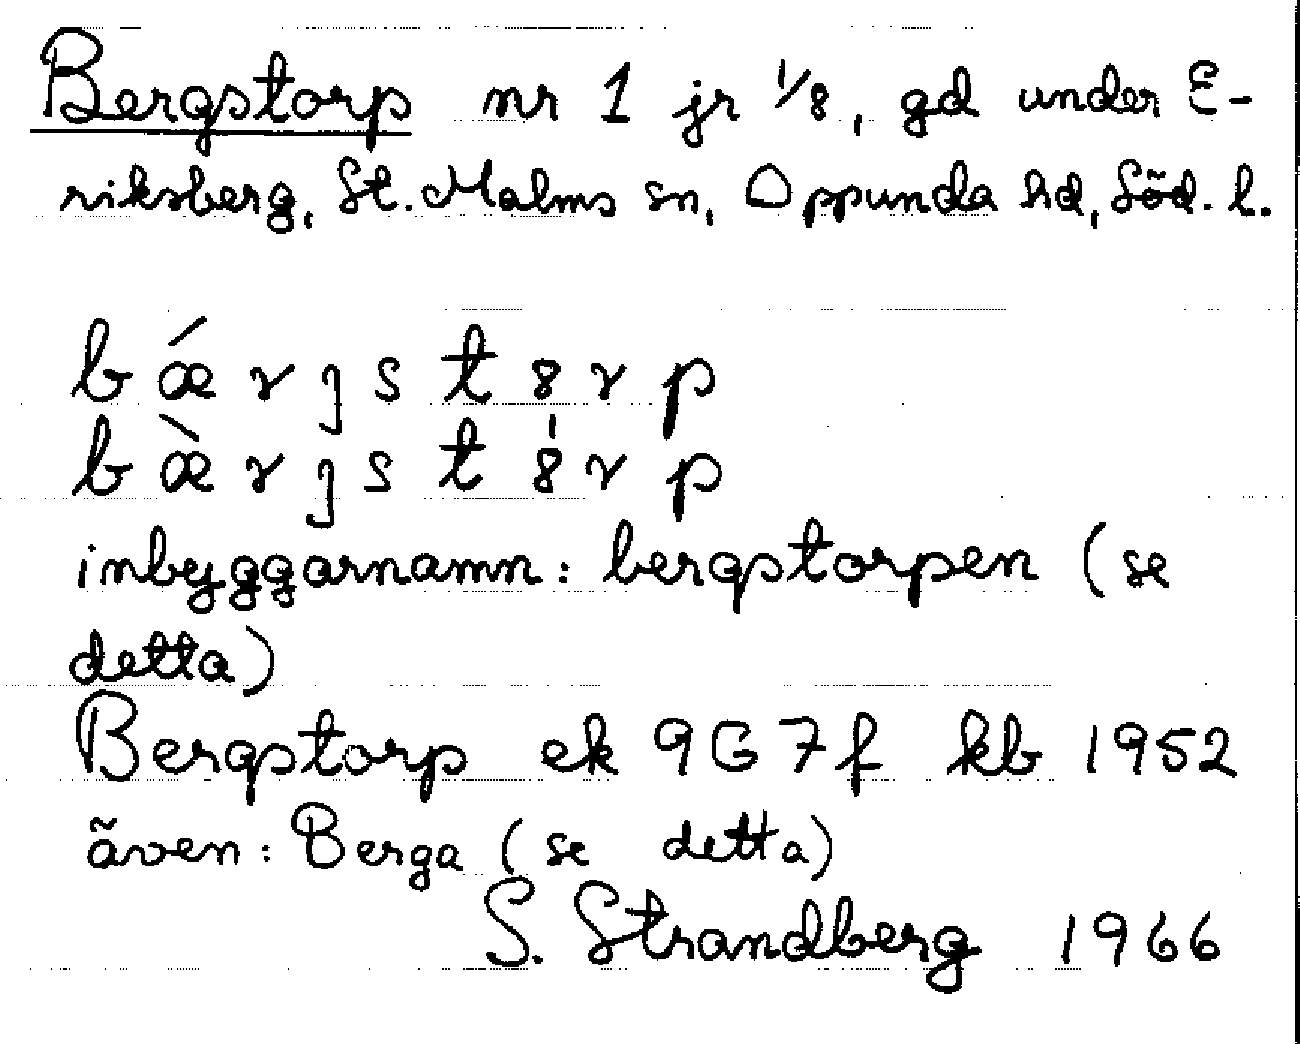 Bergstorp nr 1 jr 1/8, gd under E-
riksberg, St. Malms sn, Oppunda hd, Söd. l.
b ǽ r ȷ s t 8 r p
b æ̀ r ȷ s t 8̍ r p
inbyggarnamn: bergstorpen (se
detta)
Bergstorp ek 9G7f kb 1952
även: Berga (se detta)
S. Strandberg 1966